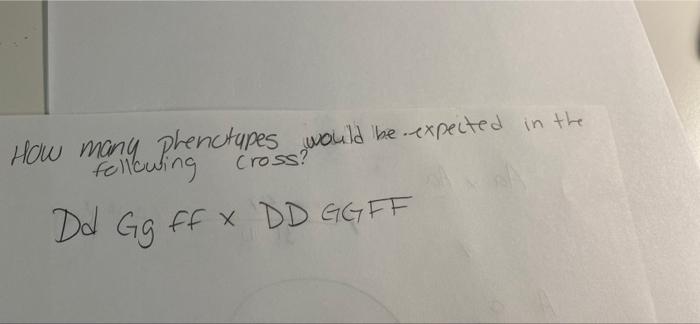 How many phenotypes would be expected in the
following cross?
Dd Gg ff x DD GGFF